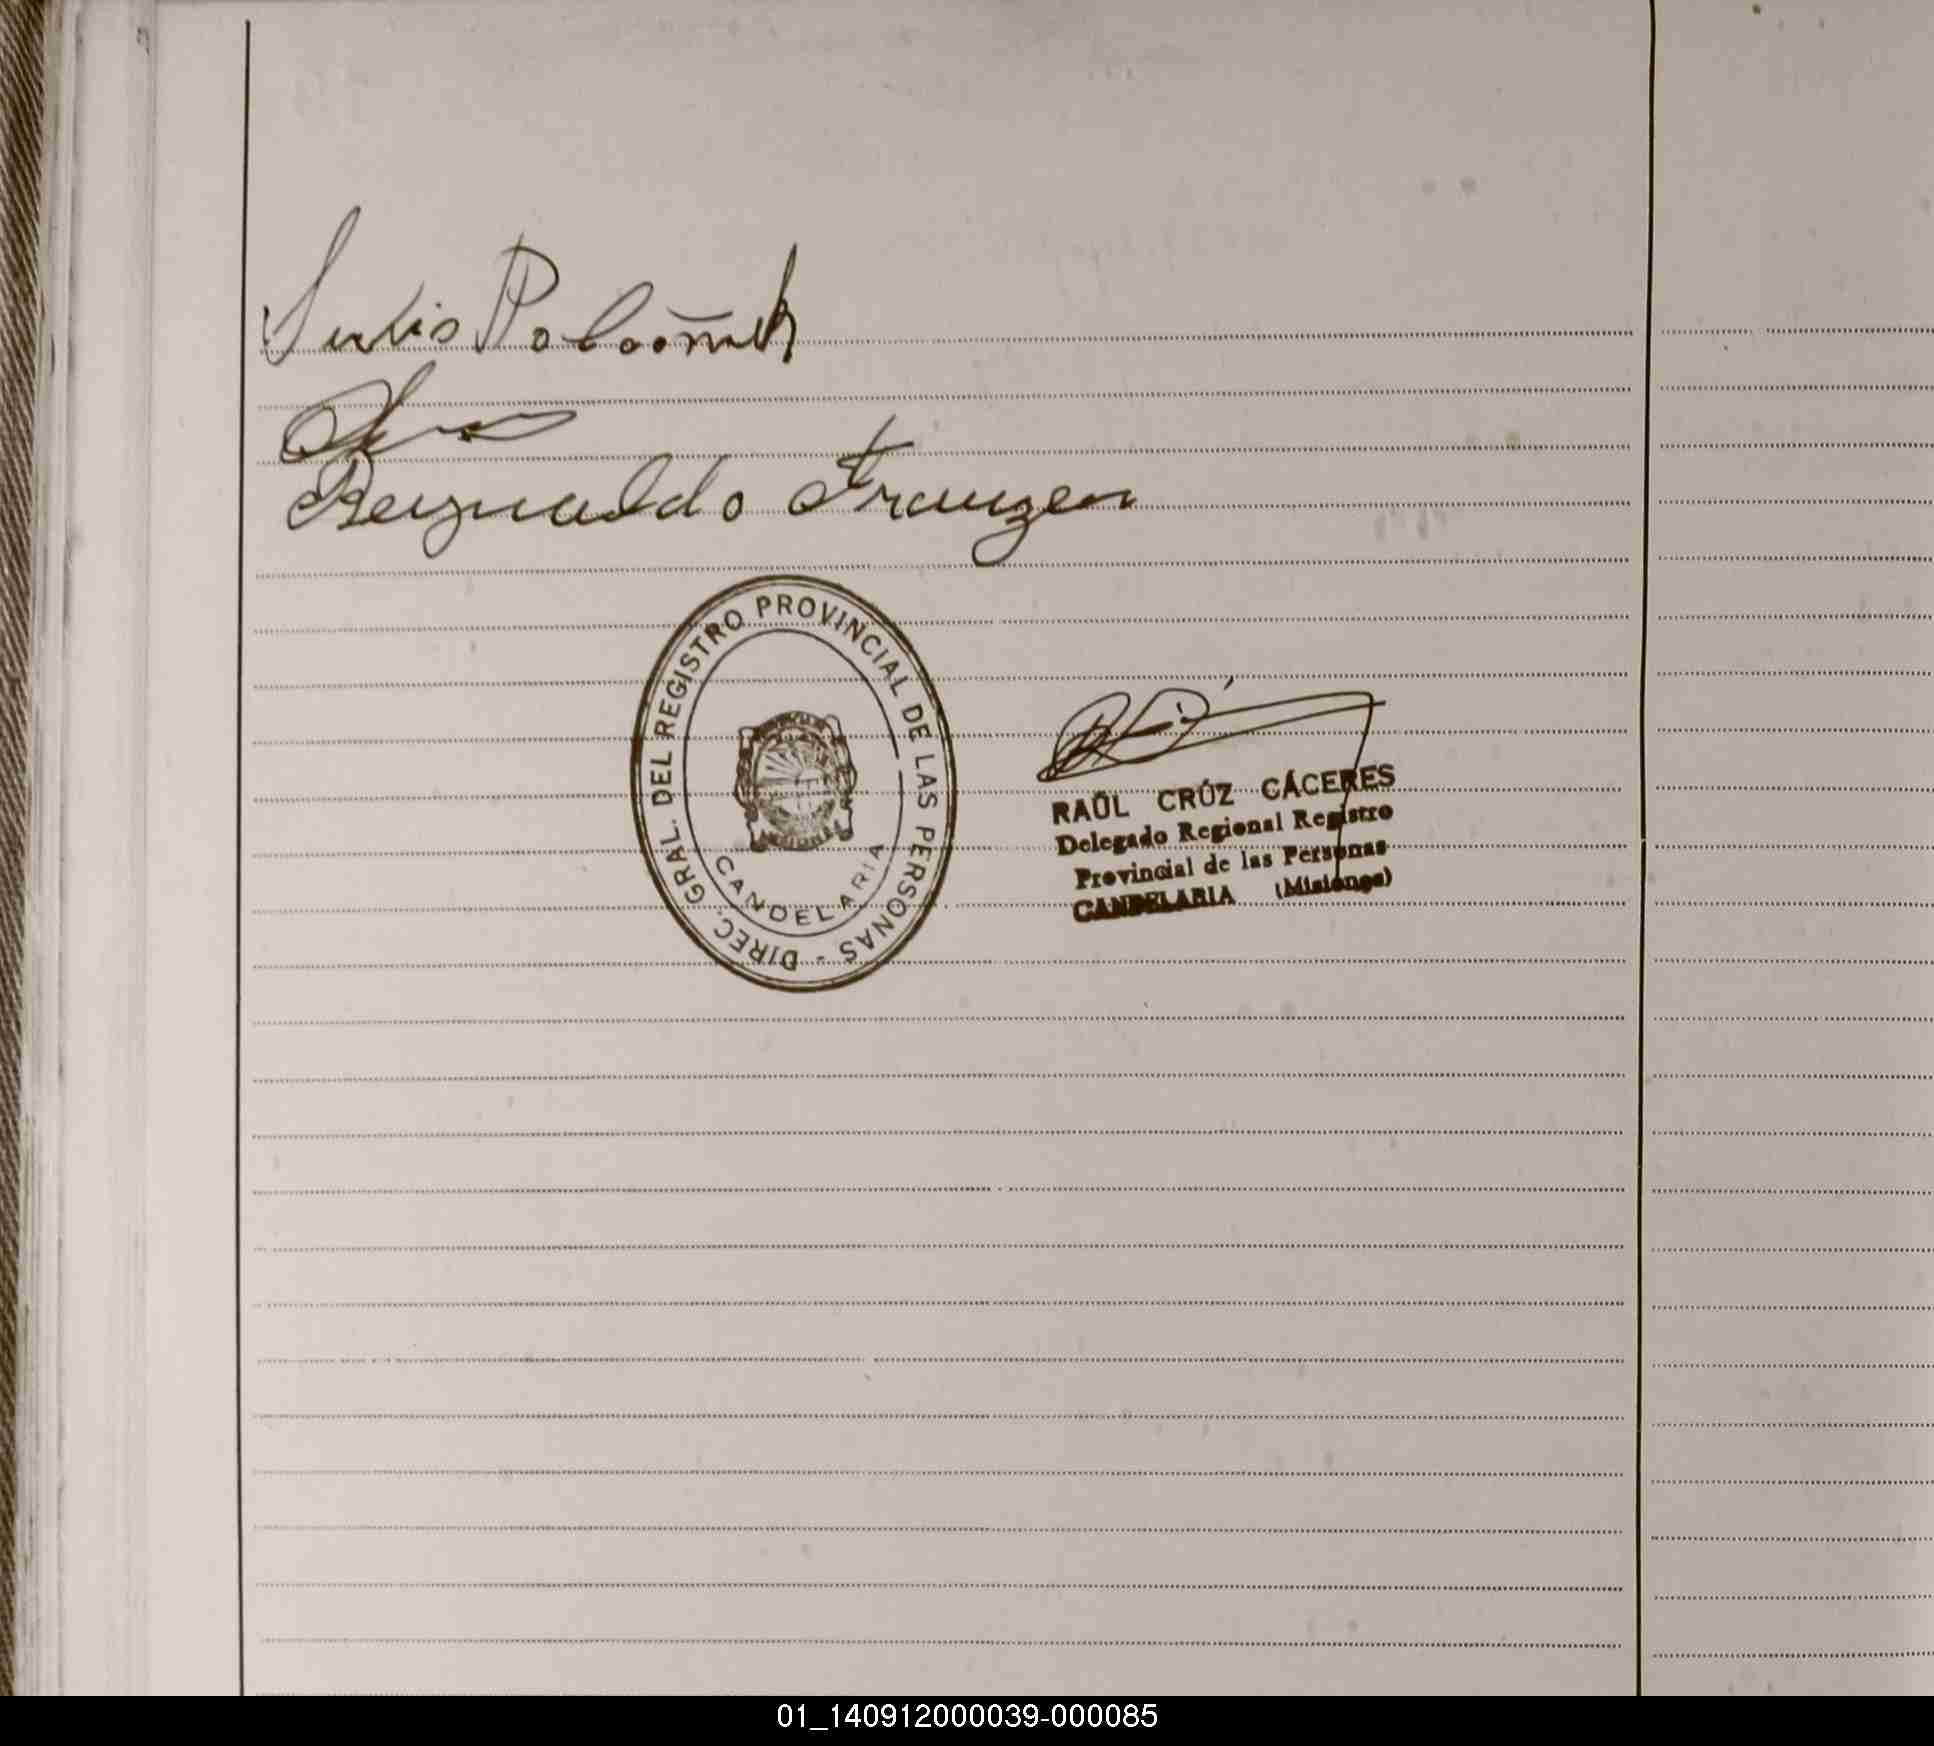 Luis
Reynaldo Franzen
DIREC. GRAL. DEL REGISTRO PROVINCIAL DE LAS PERSONAS -
CANDELARIA
RAÚL CRÚZ CÁCERES
Delegado Regional Registro
Provincial de las Personas
CANDELARIA (Misiones)
01_140912000039-000085